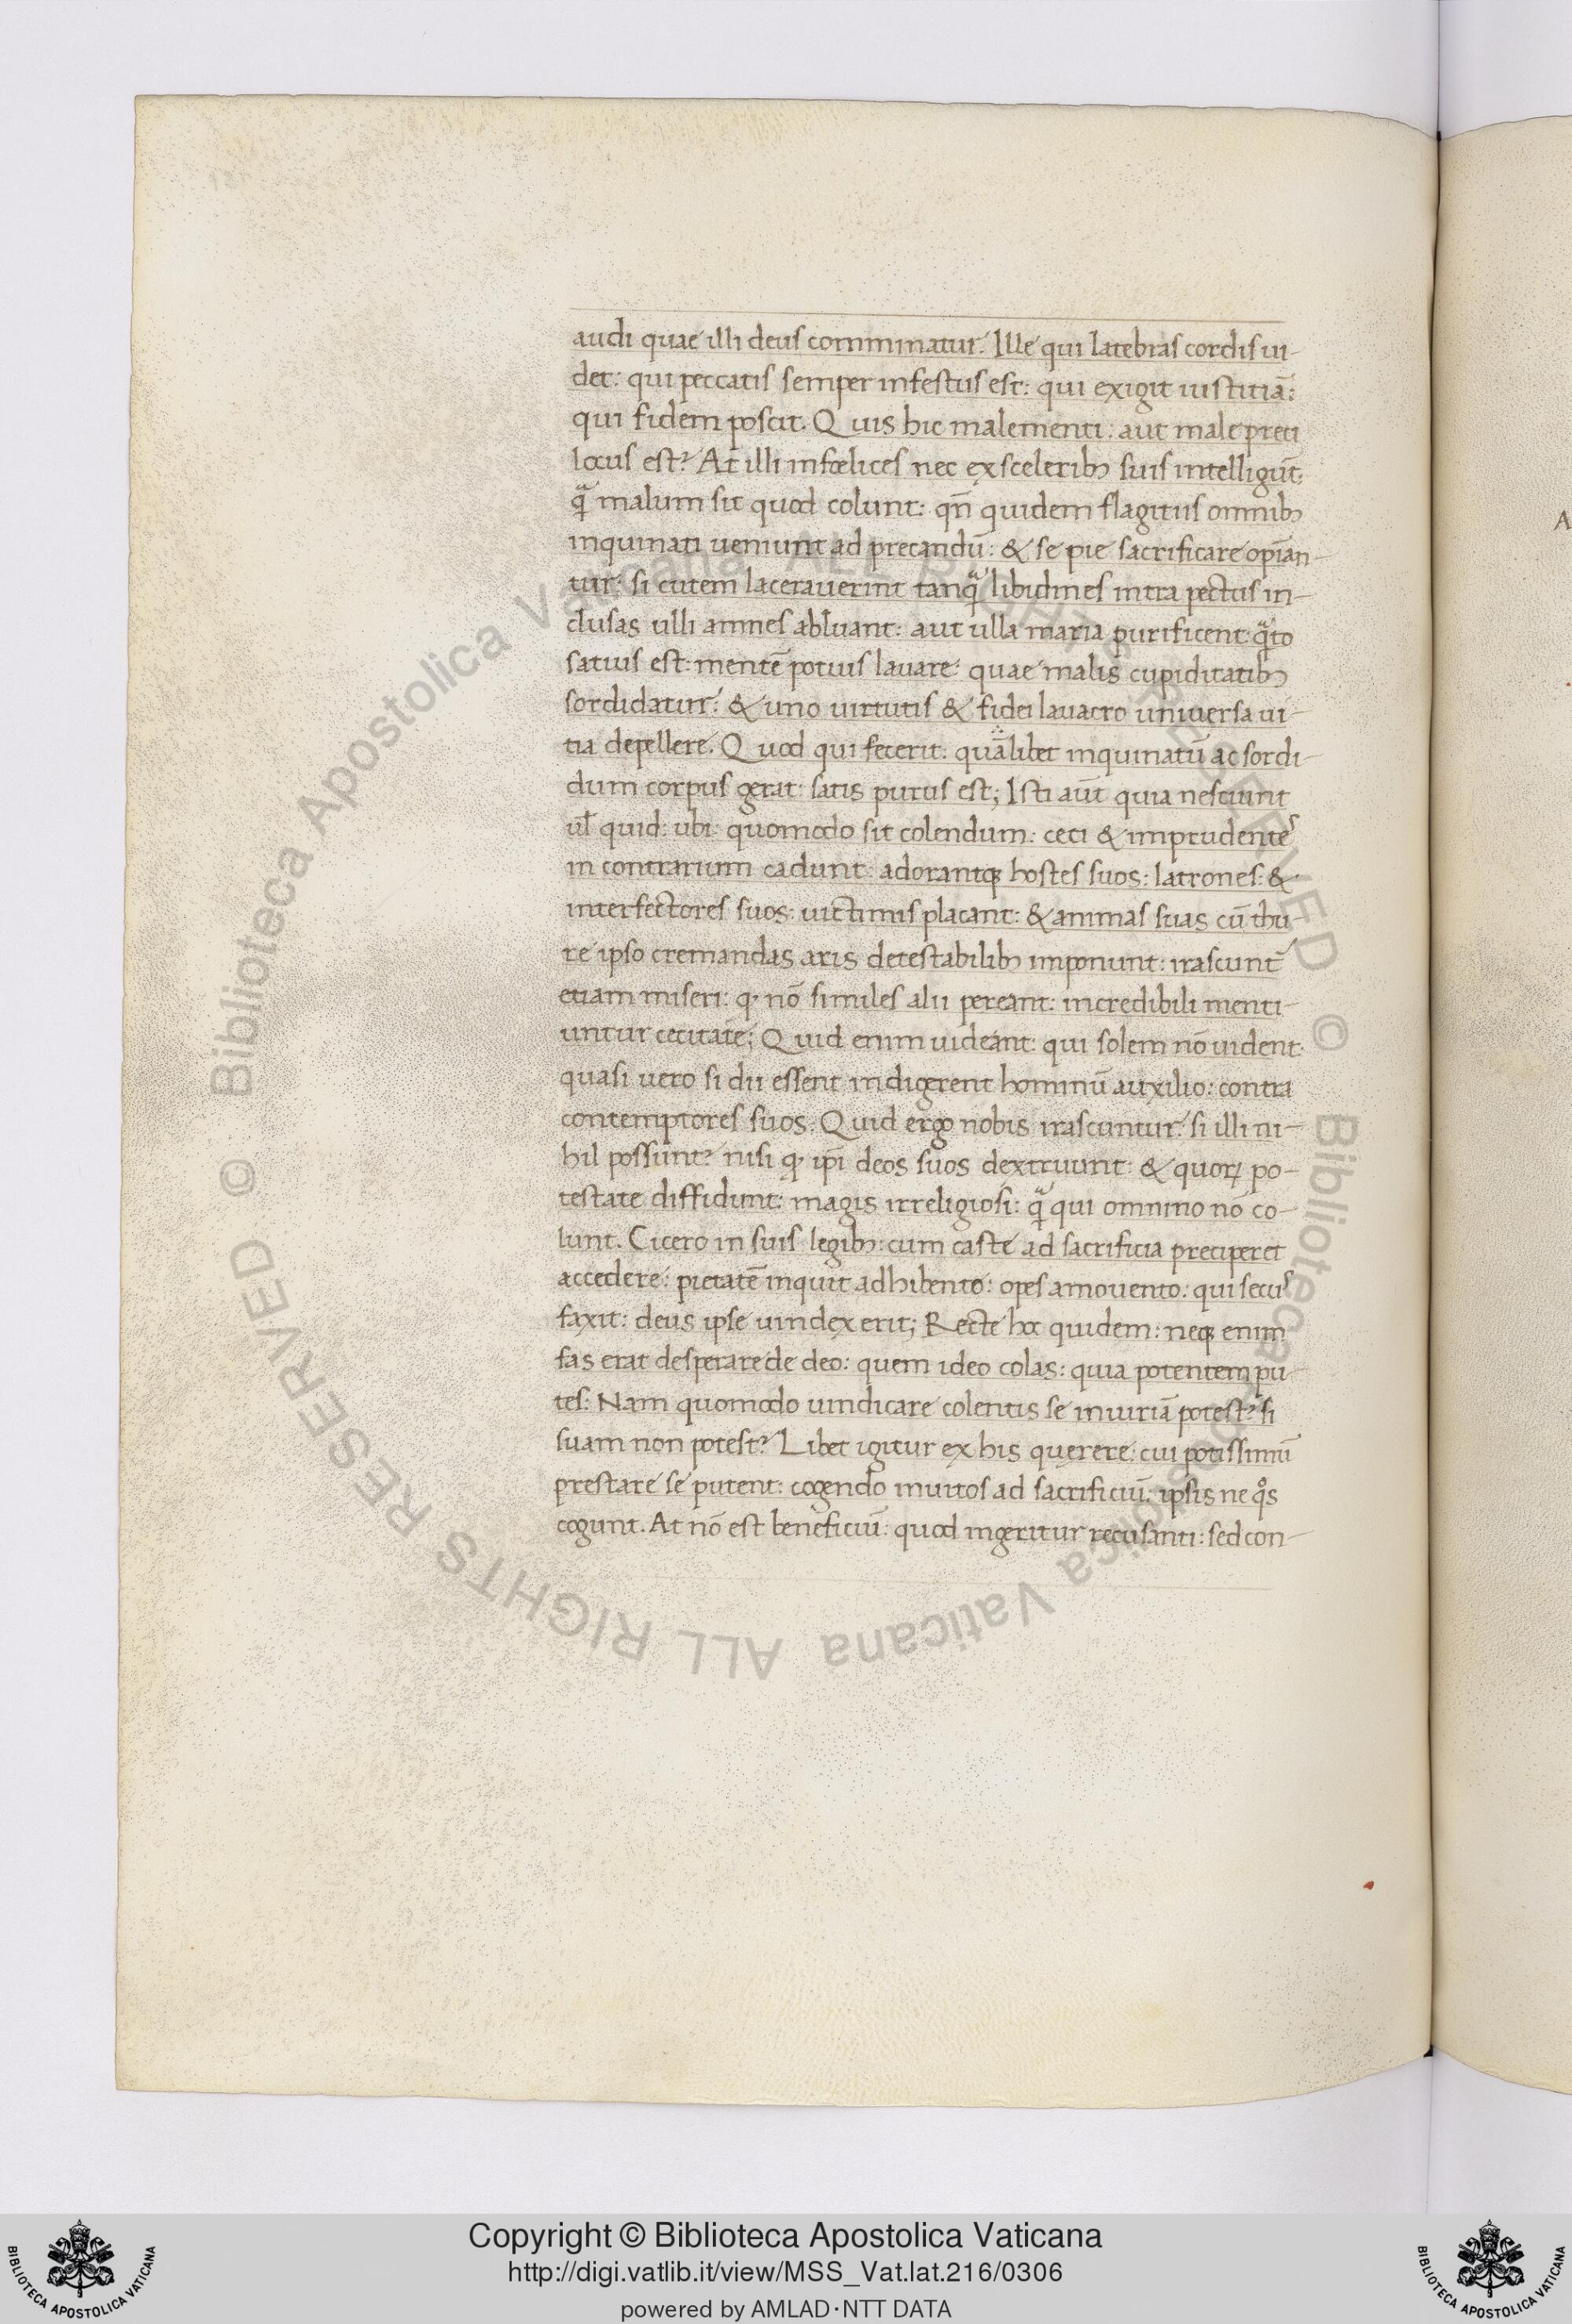 audi quae illi deus comminatur. Ille qui latebras cordis ui-
det: qui peccatis semper infestus est: qui exigit iustitiā:
qui fidem poscit. Quis hic malementi: aut male preci
locus est? At illi infœlices nec ex sceleribꝫ suis intelligūt:
qͣ̄ malum sit quod colunt: qn̄ quidem flagitiis omnibꝫ
inquinati ueniunt ad precandū: & se pie sacrificare opian-
tur: si cutem lacerauerint tanqͣ̄ libidines intra pectus in-
clusas ulli amnes abluant: aut ulla maria purificent: qͣ̄to
satius est: mentē potius lauare: quae malis cupiditatibꝫ
sordidatur: & uno uirtutis & fidei lauacro uniuersa ui-
tia depellere. Quod qui fecerit: quālibet inquinatū ac sordi-
dum corpus gerat: satis purus est; Isti aūt quia nesciunt
ul̄ quid: ubi: quomodo sit colendum: ceci & imprudentes
in contrarium cadunt: adorantqꝫ hostes suos: latrones: &
interfectores suos: uictimis placant: & animas suas cū thu-
re ipso cremandas aris detestabilibꝫ imponunt: irascunt̄
etiam miseri: ꝙ nō similes alii pereant: incredibili menti-
untur cecitate; Quid enim uideant: qui solem nō uident:
quasi uero si dii essent indigerent hominū auxilio: contra
contemptores suos. Quid ergo nobis irascuntur: si illi ni-
hil possunt? nisi ꝙ ip̄i deos suos dextruunt: & quoꝝ po-
testate diffidunt: magis irreligiosi: qͣ̄ qui omnino nō co-
lunt. Cicero in suis legibꝫ: cum caste ad sacrificia preciperet
accedere: pietatē inquit adhibento: opes amouento: qui secus
faxit: deus ipse uindex erit; Recte hoc quidem: neqꝫ enim
fas erat desperare de deo: quem ideo colas: quia potentem pu-
tes: Nam quomodo uindicare colentis se iniuriā potest? si
suam non potest? Libet igitur ex his querere: cui potissimū
prestare se putent: cogendo inuitos ad sacrificiū: ipsis ne qͦs
cogunt. At nō est beneficiū: quod ingeritur recusanti: sed con-
A
© Biblioteca Apostolica Vaticana ALL RIGHTS RESERVED © Biblioteca Apostolica Vaticana ALL RIGHTS RESERVED
Copyright © Biblioteca Apostolica Vaticana
http://digi.vatlib.it/view/MSS_Vat.lat.216/0306
powered by AMLAD·NTT DATA
BIBLIOTECA APOSTOLICA VATICANA
BIBLIOTECA APOSTOLICA VATICANA